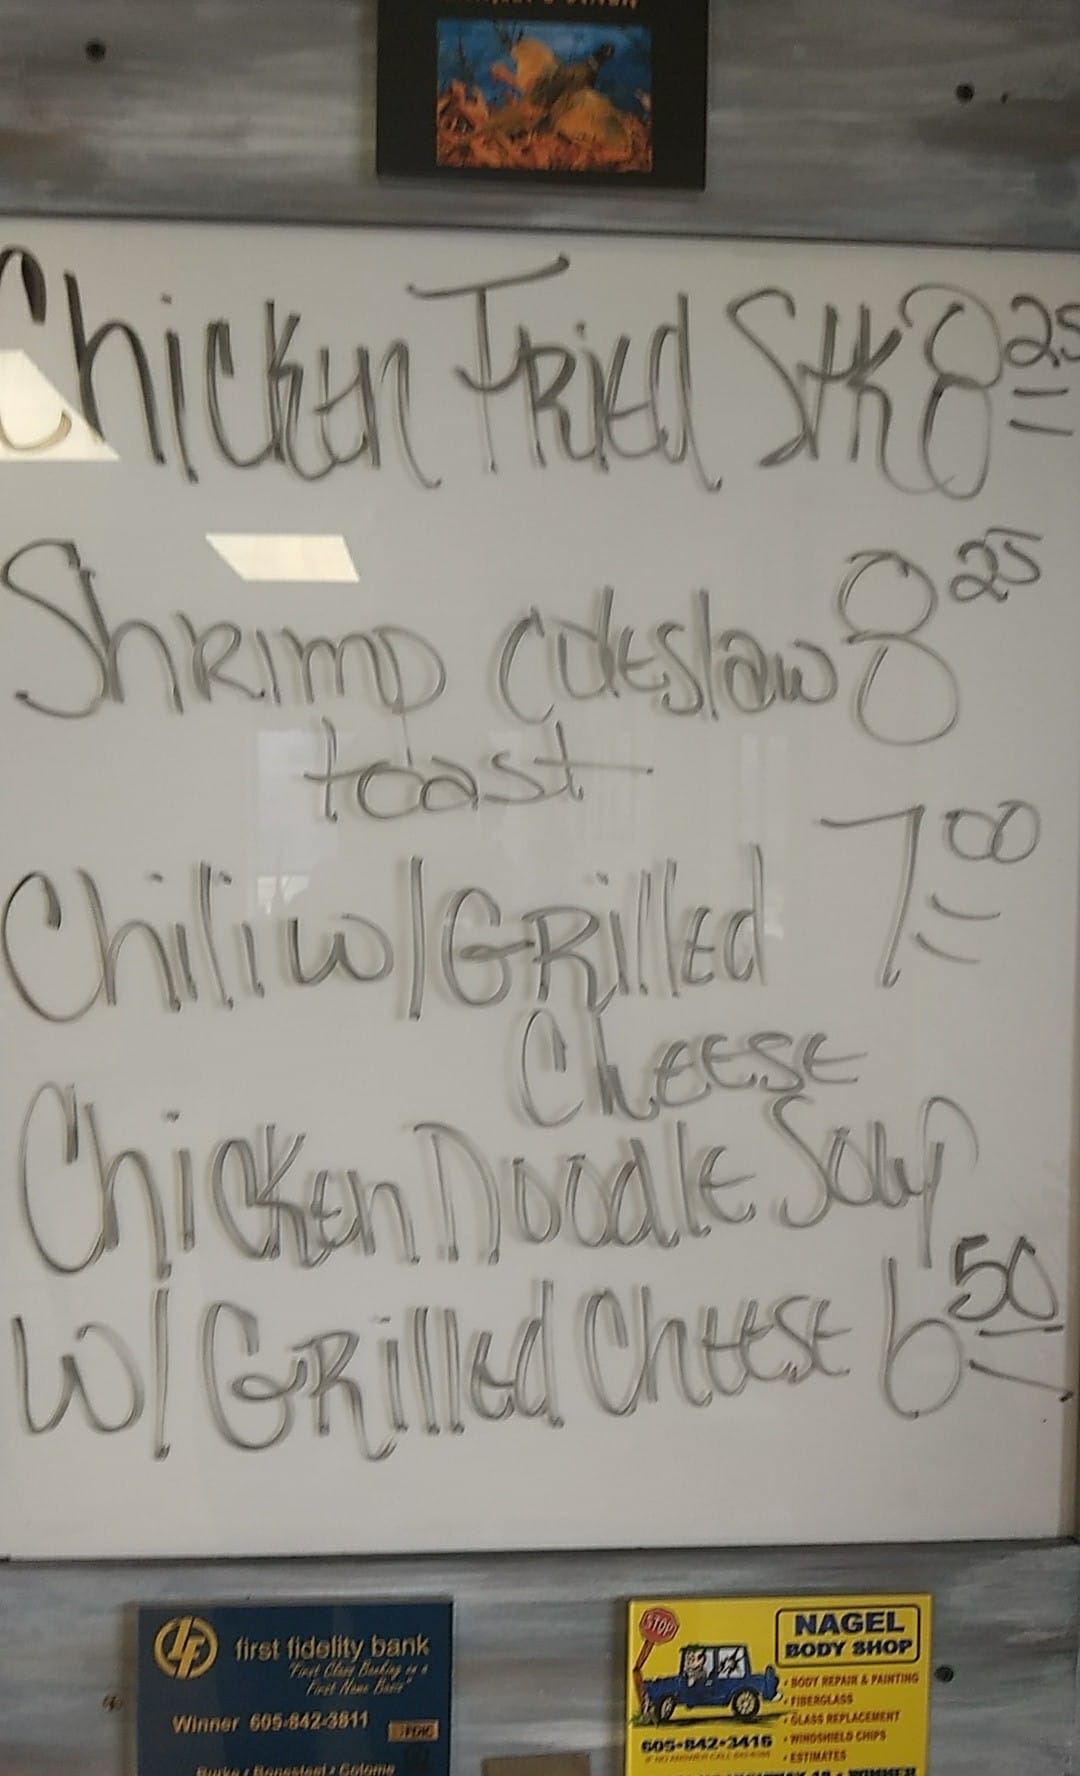 Chicken Fried Stk 8 25
Shrimp Coleslaw 8 25
toast
Chili w/ Grilled 7 00
Cheese
Chicken Doodle Soup
w/ Grilled Cheese 6 50
first fidelity bank
"First Class Banking on a
First Name Basis"
Winner 605-842-3811
FDIC
Burke • Bonesteel • Colome
STOP
NAGEL
BODY SHOP
• BODY REPAIR & PAINTING
• FIBERGLASS
• GLASS REPLACEMENT
• WINDSHIELD CHIPS
• ESTIMATES
605-842-3416
WINNER